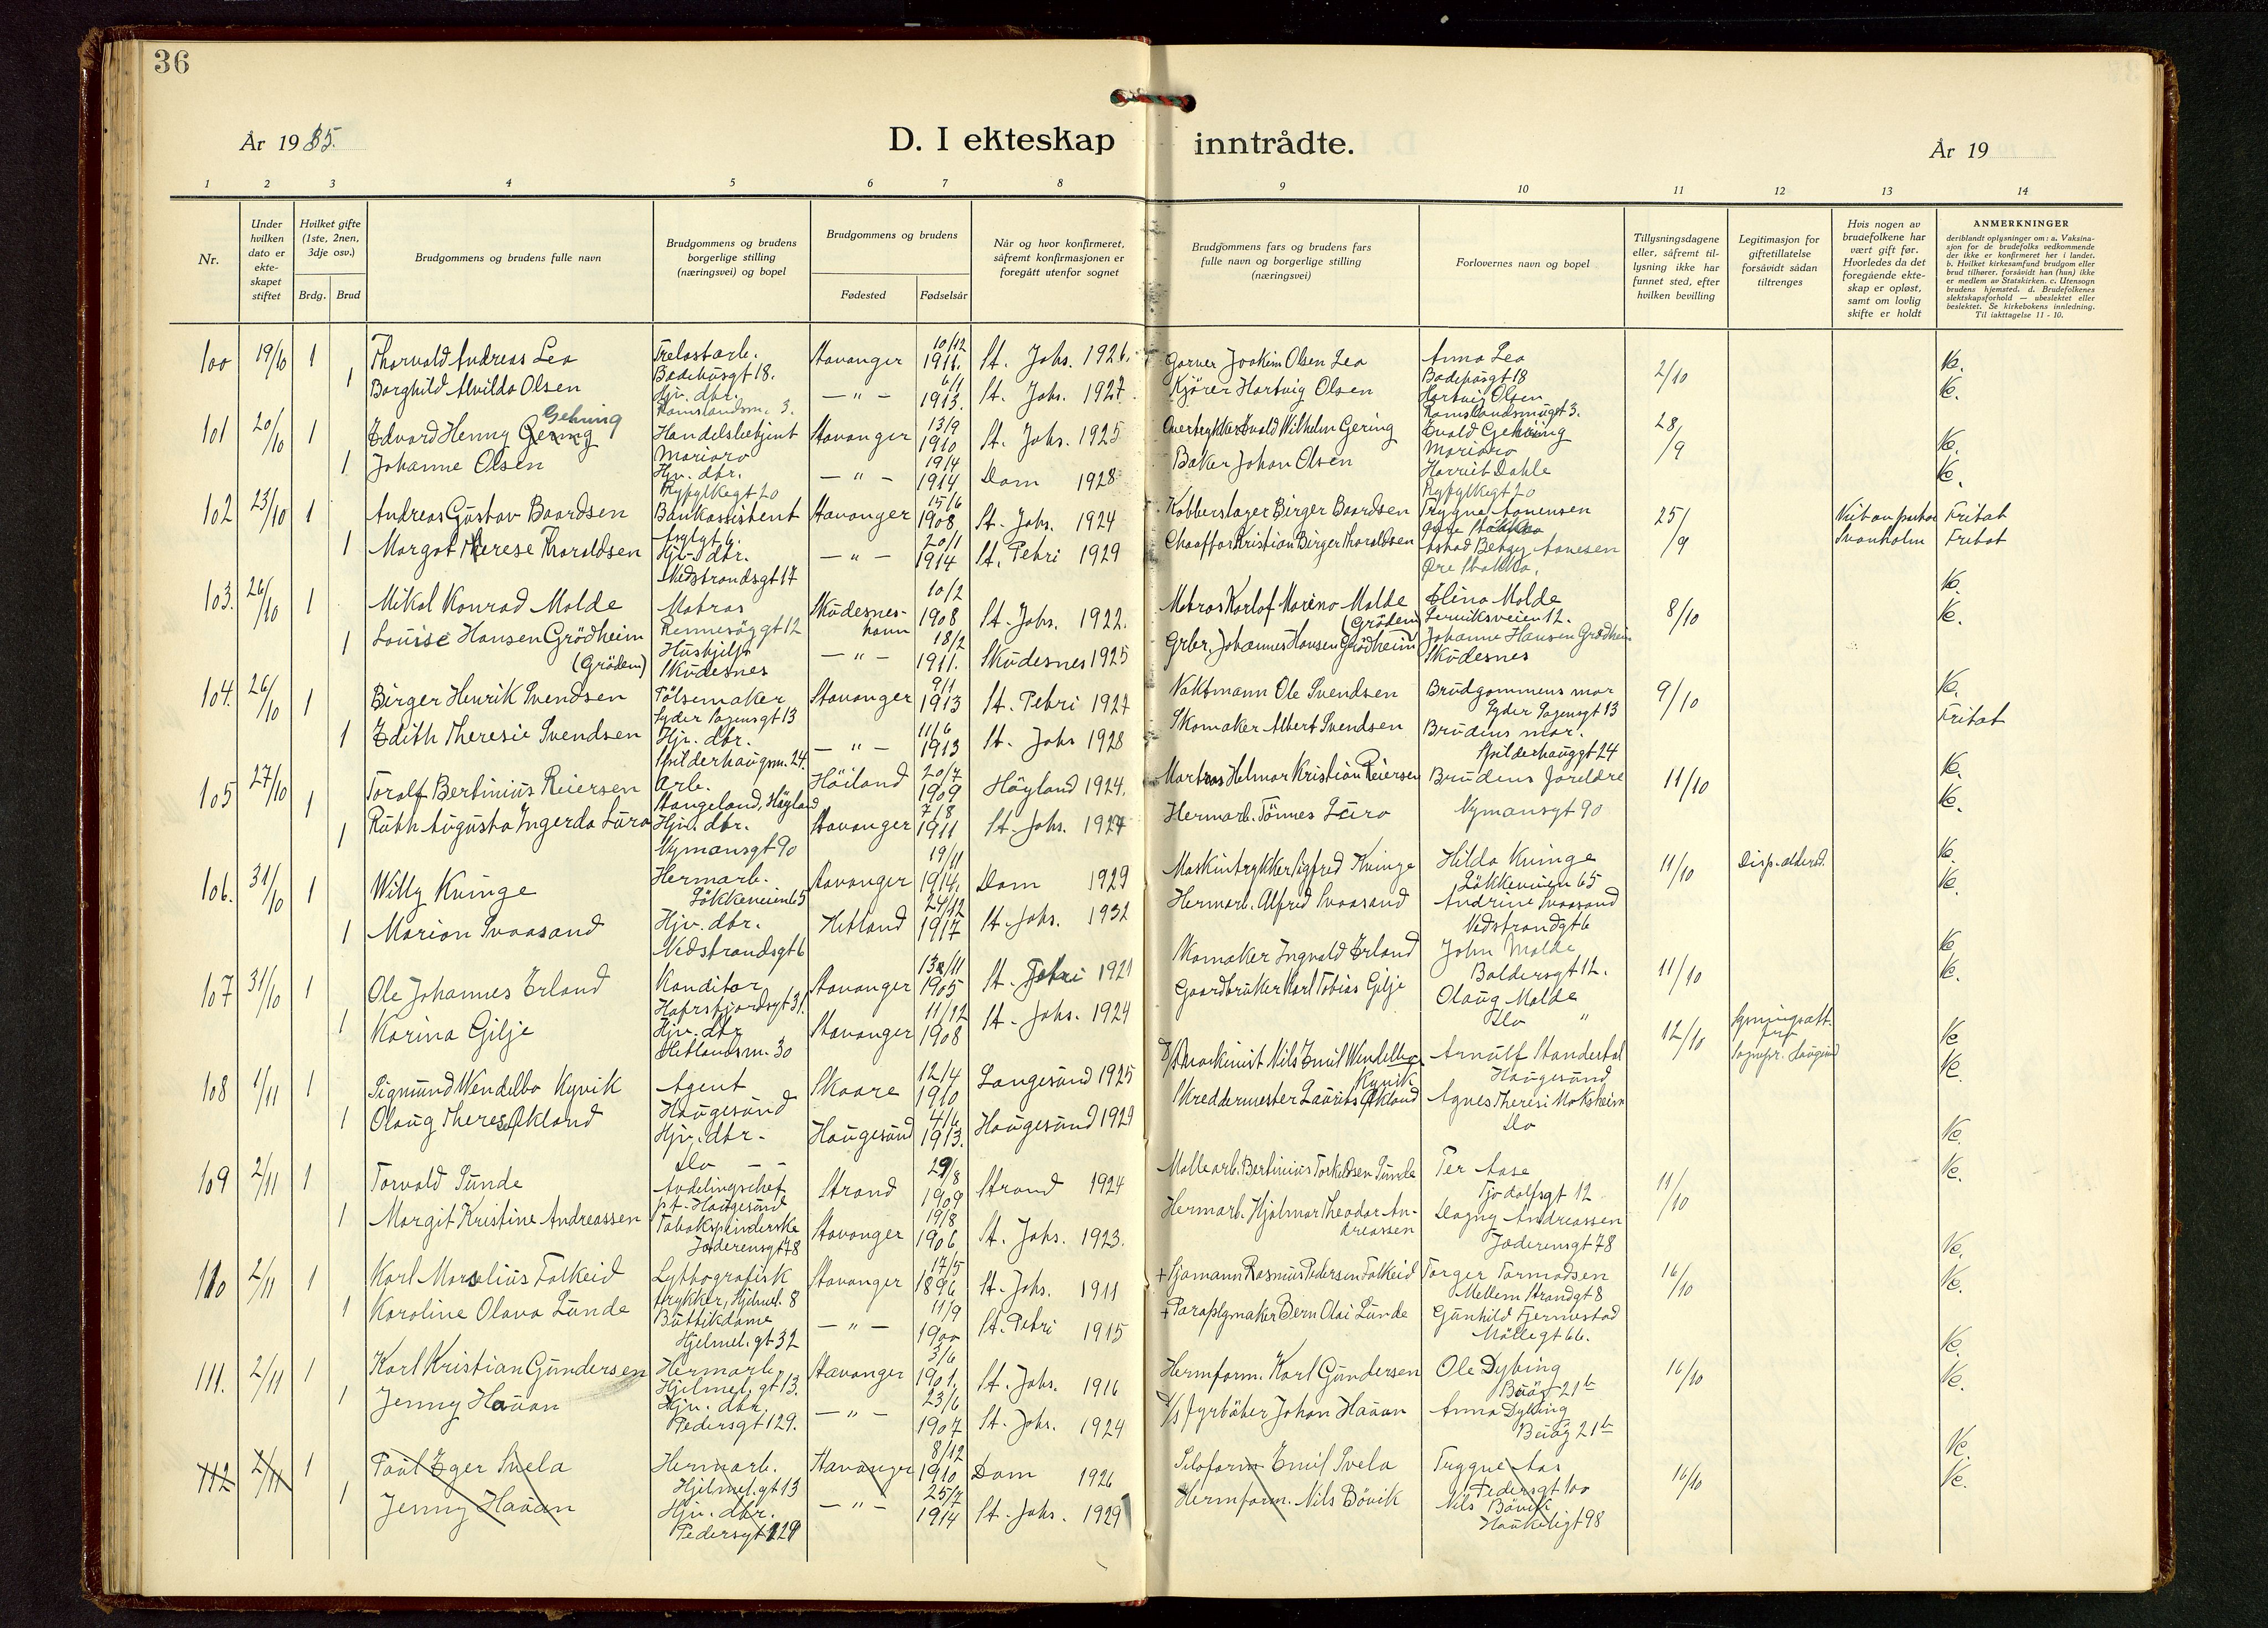 36
År 1935.
D. I ekteskap inntrådte.
År 19
1 2 3 4 5 6 7 8 9 10 11 12 13 14
Nr.
Under hvilken dato er ekte-skapet stiftet
Hvilket gifte (1ste, 2nen, 3dje osv.)
Brdg. Brud
Brudgommens og brudens fulle navn
Brudgommens og brudens borgerlige stilling (næringsvei) og bopel
Brudgommens og brudens
Fødested Fødselsår
Når og hvor konfirmeret, såfremt konfirmasjonen er foregått utenfor sognet
Brudgommens fars og brudens fars fulle navn og borgerlige stilling (næringsvei)
Forlovernes navn og bopel
Tillysningsdagene eller, såfremt til-lysning ikke har funnet sted, efter hvilken bevilling
Legitimasjon for giftetillatelse forsåvidt sådan tiltrenges
Hvis nogen av brudefolkene har vært gift før. Hvorledes da det foregående ekte-skap er opløst, samt om lovlig skifte er holdt
ANMERKNINGER
deriblandt oplysninger om: a. Vaksina-sjon for de brudefolks vedkommende der ikke er konfirmeret her i landet. b. Hvilket kirkesamfund brudgom eller brud tilhører, forsåvidt han (hun) ikke er medlem av Statskirken. c. Utensogn brudens hjemsted. d. Brudefolkenes slektskapsforhold — ubeslektet eller beslektet. Se kirkebokens innledning. Til iakttagelse 11 - 10.
100 19/10 1 Thorvald Andreas Lea Trelastarb. Badehusgt 18. Stavanger 10/12 1911. St. Johs. 1926. Garver Joakim Olsen Lea Anna Lea Badehusgt 18 2/10 Ve.
1 Borghild Alvilda Olsen Hjv. dtr. Ramslandsm. 3. — " — 6/1 1913. St. Johs. 1927. Kjører Hartvig Olsen Hartvig Olsen Ramslandsmugt 3. Ve.
101 20/10 1 Edvard Henny Gering Gehring Handelsbetjent Mariero Stavanger 13/9 1910 St. Johs. 1925 Overtrykker Evald Wilhelm Gering Evald Gehring Mariero 28/9 Ve.
1 Johanne Olsen Hjv. dtr. Ryfylkegt 20 — " — 19/4 1914 Dom 1928 Baker Johan Olsen Harriet Dahle Ryfylkegt 20 Ve.
102 23/10 1 Andreas Gustav Baardsen Bankassistent Stavanger 15/6 1908 St. Johs. 1924 Kobberslager Birger Baardsen Trygve Aanensen 25/9 Fritat
1 Margot Therese Thoraldsen Hjv. dtr. Nedstrandsgt 17 — " — 20/1 1914 St. Petri 1929 Chauffør Kristian Birger Thoraldsen Øre Stokka. Svanholm Fritat
103. 26/10 1 Mikal Konrad Molde Matros Rennesøygt 12 Skudesnes-havn 10/2 1908 St. Johs. 1922. Matros Karlof Marino Molde Elina Molde Lerviksveien 12. 8/10 Ve.
1 Louise Hansen Grödheim (Gröden) Hushjelp Skudesnes — " — 18/2 1911. Skudesnes 1925 Grbr. Johannes Hansen Grödheim (Gröden) Johanne Hansen Grödheim Skudesnes Ve.
104. 26/10 1 Birger Henrik Svendsen Pölsemaker Lyder Sagensgt 13 Stavanger 9/1 1913 St. Petri 1927 Vaktmann Ole Svendsen Brudgommens mor Lyder Sagensgt 13 9/10 Ve.
1 Edith Theresie Svendsen Hjv. dtr. Spilderhaugsm. 24. — " — 11/6 1913 St. Johs 1928 Skomaker Albert Svendsen Brudens mor. Spilderhauggt 24 Fritat
105 27/10 1 Toralf Bertinius Reiersen Arb. Stangeland, Höyland Höiland 20/7 1909 Höyland 1924. Matros Helmar Kristian Reiersen Brudens foreldre 11/10 Ve.
1 Ruth Augusta Ingerda Lura Hjv. dtr. Nymansgt 90 Stavanger 7/8 1911 St. Johs. 1927 Hermarb. Tönnes Lura Nymansgt 90 Ve.
106. 31/10 1 Willy Kvinge Hermarb. Lökkeveien 65 Stavanger 19/11 1914. Dom 1929 Maskintrykker Sigfred Kvinge Hilda Kvinge Lökkeveien 65 11/10 Disp. aldersd. Ve.
1 Marion Svaasand Hjv. dtr. Nedstrandsgt 6 Hetland 24/12 1917 St. Johs. 1932 Hermarb. Alfred Svaasand Andrine Svaasand Nedstrandgt 6 Ve.
107 31/10 1 Ole Johannes Erland Konditor Hafrsfjordsgt 31. Stavanger 13/11 1905 St. Petri 1921 Skomaker Ingvald Erland John Molde Baldersgt 12. 11/10 Ve.
1 Karina Gilje Hjv. dtr Hetlandsm. 30 Stavanger 11/12 1908 St. Johs. 1924 Gaardbruker Karl Tobias Gilje Olaug Molde Do " Ve.
108 1/11 1 Sigmund Wendelbo Kyvik Agent Haugesund Skaare 12/4 1910 Langesund 1925 Maskinist Nils Emil Wendelbo Kyvik Arnulf Standertal Haugesund 12/10 Lysningsatt. fra Sognepr. Haugesund Ve
1 Olaug Therese Økland Hjv. dtr. Do — — Haugesund 4/6 1913. Haugesund 1929 Skreddermester Laurits Økland Agnes Theresi Moksheim Do Ve.
109 2/11 1 Torvald Sunde Avdelingschef pt. Haugesund Strand 29/8 1909 Strand 1924 Mollearb. Bertinius Torkeldsen Sunde Per Aase Tjodolfsgt 12 11/10 Ve.
1 Margit Kristine Andreassen Tobakspinderske Jæderensgt 78 Stavanger 19/8 1906 St. Johs. 1923. Hermarb. Hjalmar Theodor Andreassen Dagny Andreassen Jæderensgt 78 Ve.
110 2/11 1 Karl Marselius Falkeid Lythografisk trykker, Hjelmel. 8 Stavanger 17/5 1896 St. Johs. 1911 + Sjømann Rasmus Pedersen Falkeid Torger Tormodsen Mellem Strandgt 8 16/10 Ve.
1 Karoline Olava Lunde Butikdame Hjelmel. gt 32 — " — 11/9 1900 St. Petri 1915 + Paraplymaker Bern Olai Lunde Gunhild Fjermestad Möllegt 66. Ve.
111. 2/11 1 Karl Kristian Gundersen Hermarb. Hjelmel. gt 13. Stavanger 3/6 1901. St. Johs. 1916 Hermform. Karl Gundersen Ole Dybing Buöy 21b 16/10 Ve.
1 Jenny Hauan Hjv. dtr. Pedersgt 129. — " — 23/6 1907 St. Johs. 1924 Fyrböter Johan Hauan Anna Dybing Buöy 21b Ve.
112 2/11 1 Paul Eger Svela Hermarb. Hjelmel. gt 13 Stavanger 8/12 1910 Dom 1926 Emil Svela Trygve Aas Pedersgt 100 16/10 Ve.
1 Jenny Hauan Hjv. dtr. Pedersgt 129 — " — 25/7 1914 St. Johs. 1929 Hermform. Nils Bövik Nils Bövik Haukeligt 98 Ve.